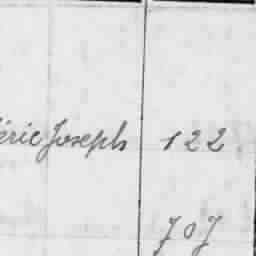 éric Joseph 122
707